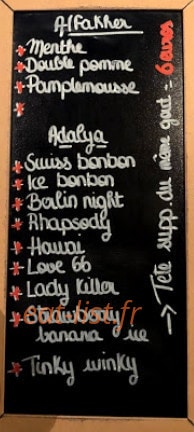 Al Fakher
* Menthe
* Double pomme
* Pamplemousse
*
Adalya
* Suiss bonbon
* Ice bonbon
* Berlin night
* Rhapsody
* Hawai
* Love 66
* Lady Killer
* Strawbody
banana ice
* Tinky winky
→ Tête supp. du même goût = 6 euros